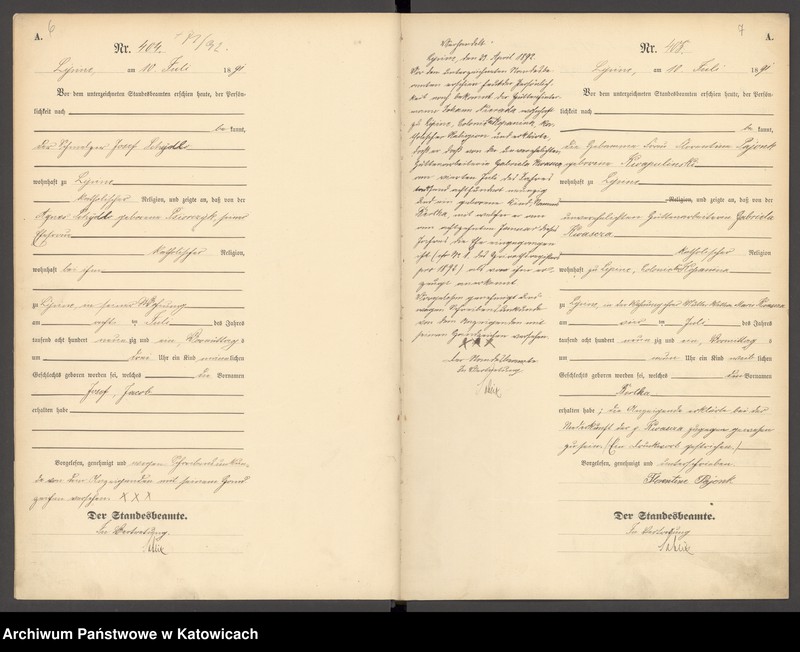 A. 6
Nr. 404.
Lipine, am 10. Juli 1891
Vor dem unterzeichneten Standesbeamten erschien heute, der Persön-
lichkeit nach
be kannt,
der Schmelzer Josef
wohnhaft zu Lipine
katholischer Religion, und zeigte an, daß von der
Agnes geborene seiner
Ehefrau
katholischer Religion,
wohnhaft bei ihm
zu Lipine, in seiner Wohnung
am achten Juli des Jahres
tausend acht hundert neun zig und ein, Vormittag s
um drei Uhr ein Kind männlichen
Geschlechts geboren worden sei, welches die Vornamen
Josef, Jacob
erhalten habe
Vorgelesen, genehmigt und wegen Schreibensunkun-
de von dem Anzeigenden mit seinem Hand-
zeichen versehen. X X X
Der Standesbeamte.
In Vertretung.
Verhandelt.
Lipine, den 23. April 1892.
Vor dem unterzeichneten Standesbe-
amten erschien heute der Persönlich-
keit nach bekannt der Hüttenarbei-
Johann wohnhaft
zu Lipine, Colonie ka-
tholischer Religion und erklärte,
daß er das von der unverehelichten
Hüttenarbeiterin Gabriela Kwasera
am vierten Juli des Jahres
tausend achthundert neunzig
und ein geborene Kind, Namens
Bertha, mit welcher er am
achtzehnten Januar dieses
Jahres die Ehe eingegangen
ist
pro 1892) als von ihm er-
zeugt anerkennt
Vorgelesen genehmigt und
wegen Schreibensunkunde
von dem Anzeigenden mit
seinem Handzeichen versehen.
X X X
Der Standesbeamte
In Vertretung
7 A.
Nr. 405.
Lipine, am 10. Juli 1891
Vor dem unterzeichneten Standesbeamten erschien heute, der Persön-
lichkeit nach
be kannt,
die Hebamme Frau Florentine Pajonk
geborene
wohnhaft zu Lipine
Religion, und zeigte an, daß von der
unverehelichten Hüttenarbeiterin Gabriela
Kwasera
katholischer Religion
wohnhaft zu Lipine, Colonie
zu Lipine, in der Wohnung ihrer Mutter Marie Kwasera
am vier Juli des Jahres
tausend acht hundert neun zig und ein, Vormittag s
um neun Uhr ein Kind weib lichen
Geschlechts geboren worden sei, welches den Vornamen
Bertha
erhalten habe; die Anzeigende erklärte bei der
Niederkunft der p. Kwasera zugegen gewesen
zu sein. (Ein Druckwort gestrichen.)
Vorgelesen, genehmigt und unterschrieben.
Florentine Pajonk
Der Standesbeamte.
In Vertretung
Archiwum Państwowe w Katowicach